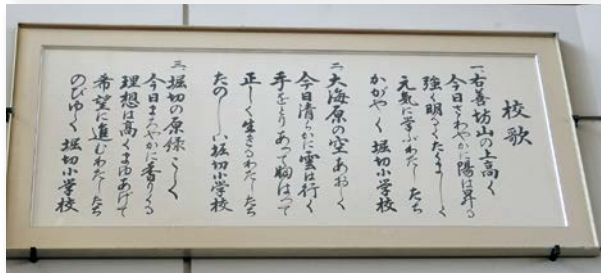 校歌
一、右善坊山の上高く
今日さわやかに陽は昇る
強く明るくたくましく
元気に学ぶわたしたち
かがやく 堀切小学校
二、大海原の空あおく
今日清らかに雲は行く
手をとりあって胸はって
正しく生きるわたしたち
たのしい堀切小学校
三、堀切の原緑こく
今日まろやかに香りくる
理想は高くまゆあげて
希望に進むわたしたち
のびゆく 堀切小学校